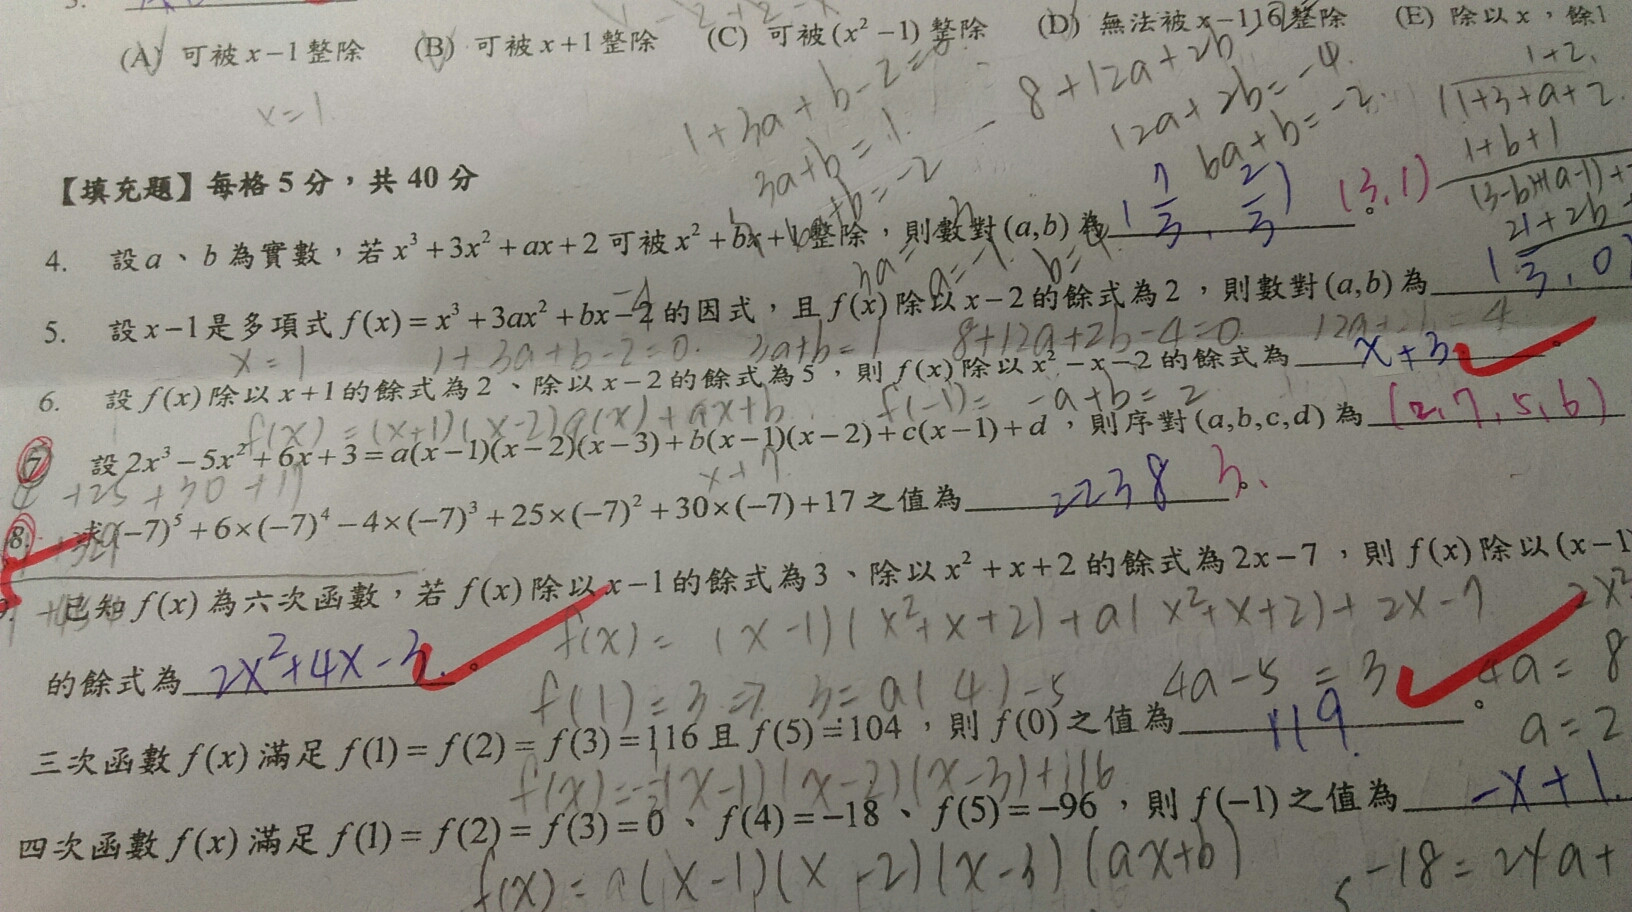 (A) 可被 x-1 整除 (B) 可被 x+1 整除 (C) 可被 (x²-1) 整除 (D) 無法被 x-116 整除 (E) 除以 x，餘1
x=1
1+3a+b-2=0
8+12a+2b
1+2
3a+b=1
12a+2b=-4
1+3+a+2
6a+b=-2
1+b+1
【填充題】每格 5 分，共 40 分
4. 設 a、b 為實數，若 x³+3x²+ax+2 可被 x²+bx+1 整除，則數對 (a,b) 為 (7/3, 2/3) (3,1)。
a=-1
5. 設 x-1 是多項式 f(x)=x³+3ax²+bx-2 的因式，且 f(x) 除以 x-2 的餘式為 2，則數對 (a,b) 為
x=1 1+3a+b-2=0 3a+b=1 8+12a+2b-4=0 12a+2b=4
6. 設 f(x) 除以 x+1 的餘式為 2、除以 x-2 的餘式為 5，則 f(x) 除以 x²-x-2 的餘式為 x+3。
f(x)=(x+1)(x-2)q(x)+ax+b f(-1)= -a+b=2
7 設 2x³-5x²+6x+3=a(x-1)(x-2)(x-3)+b(x-1)(x-2)+c(x-1)+d，則序對 (a,b,c,d) 為 (2,7,5,6)
+25+30+17 x+7
8. 求 (-7)⁵+6×(-7)⁴-4×(-7)³+25×(-7)²+30×(-7)+17 之值為 2238 3。
已知 f(x) 為六次函數，若 f(x) 除以 x-1 的餘式為 3、除以 x²+x+2 的餘式為 2x-7，則 f(x) 除以 (x-1
f(x)=(x-1)(x²+x+2)+a(x²+x+2)+2x-7 2x²
的餘式為 2x²+4x-3。
f(1)=3 => 3=a(4)-5 4a-5=3 4a=8
三次函數 f(x) 滿足 f(1)=f(2)=f(3)=116 且 f(5)=104，則 f(0) 之值為 119。
a=2
f(x)=-(x-1)(x-2)(x-3)+116
四次函數 f(x) 滿足 f(1)=f(2)=f(3)=0、f(4)=-18、f(5)=-96，則 f(-1) 之值為 -x+1
f(x)=a(x-1)(x-2)(x-3)(ax+b) -18=24a+